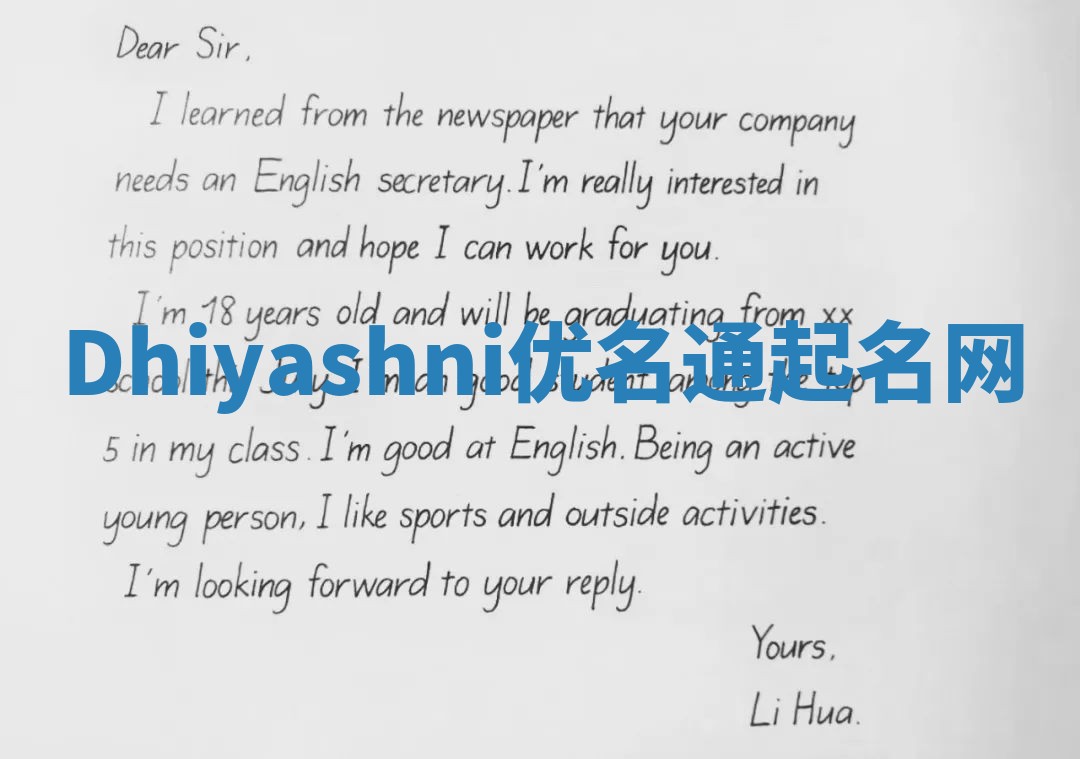 Dear Sir,
I learned from the newspaper that your company
needs an English secretary. I'm really interested in
this position and hope I can work for you.
I'm 18 years old and will be graduating from xx
Dhiyashni优名通起名网
school this July. I'm a good student among the top
5 in my class. I'm good at English. Being an active
young person, I like sports and outside activities.
I'm looking forward to your reply.
Yours,
Li Hua.